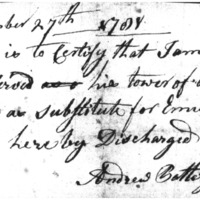 ber 27th 1781
is to Certify that Jam
his tower of
as Substitute for Em
hereby Discharged
Andrew Batt